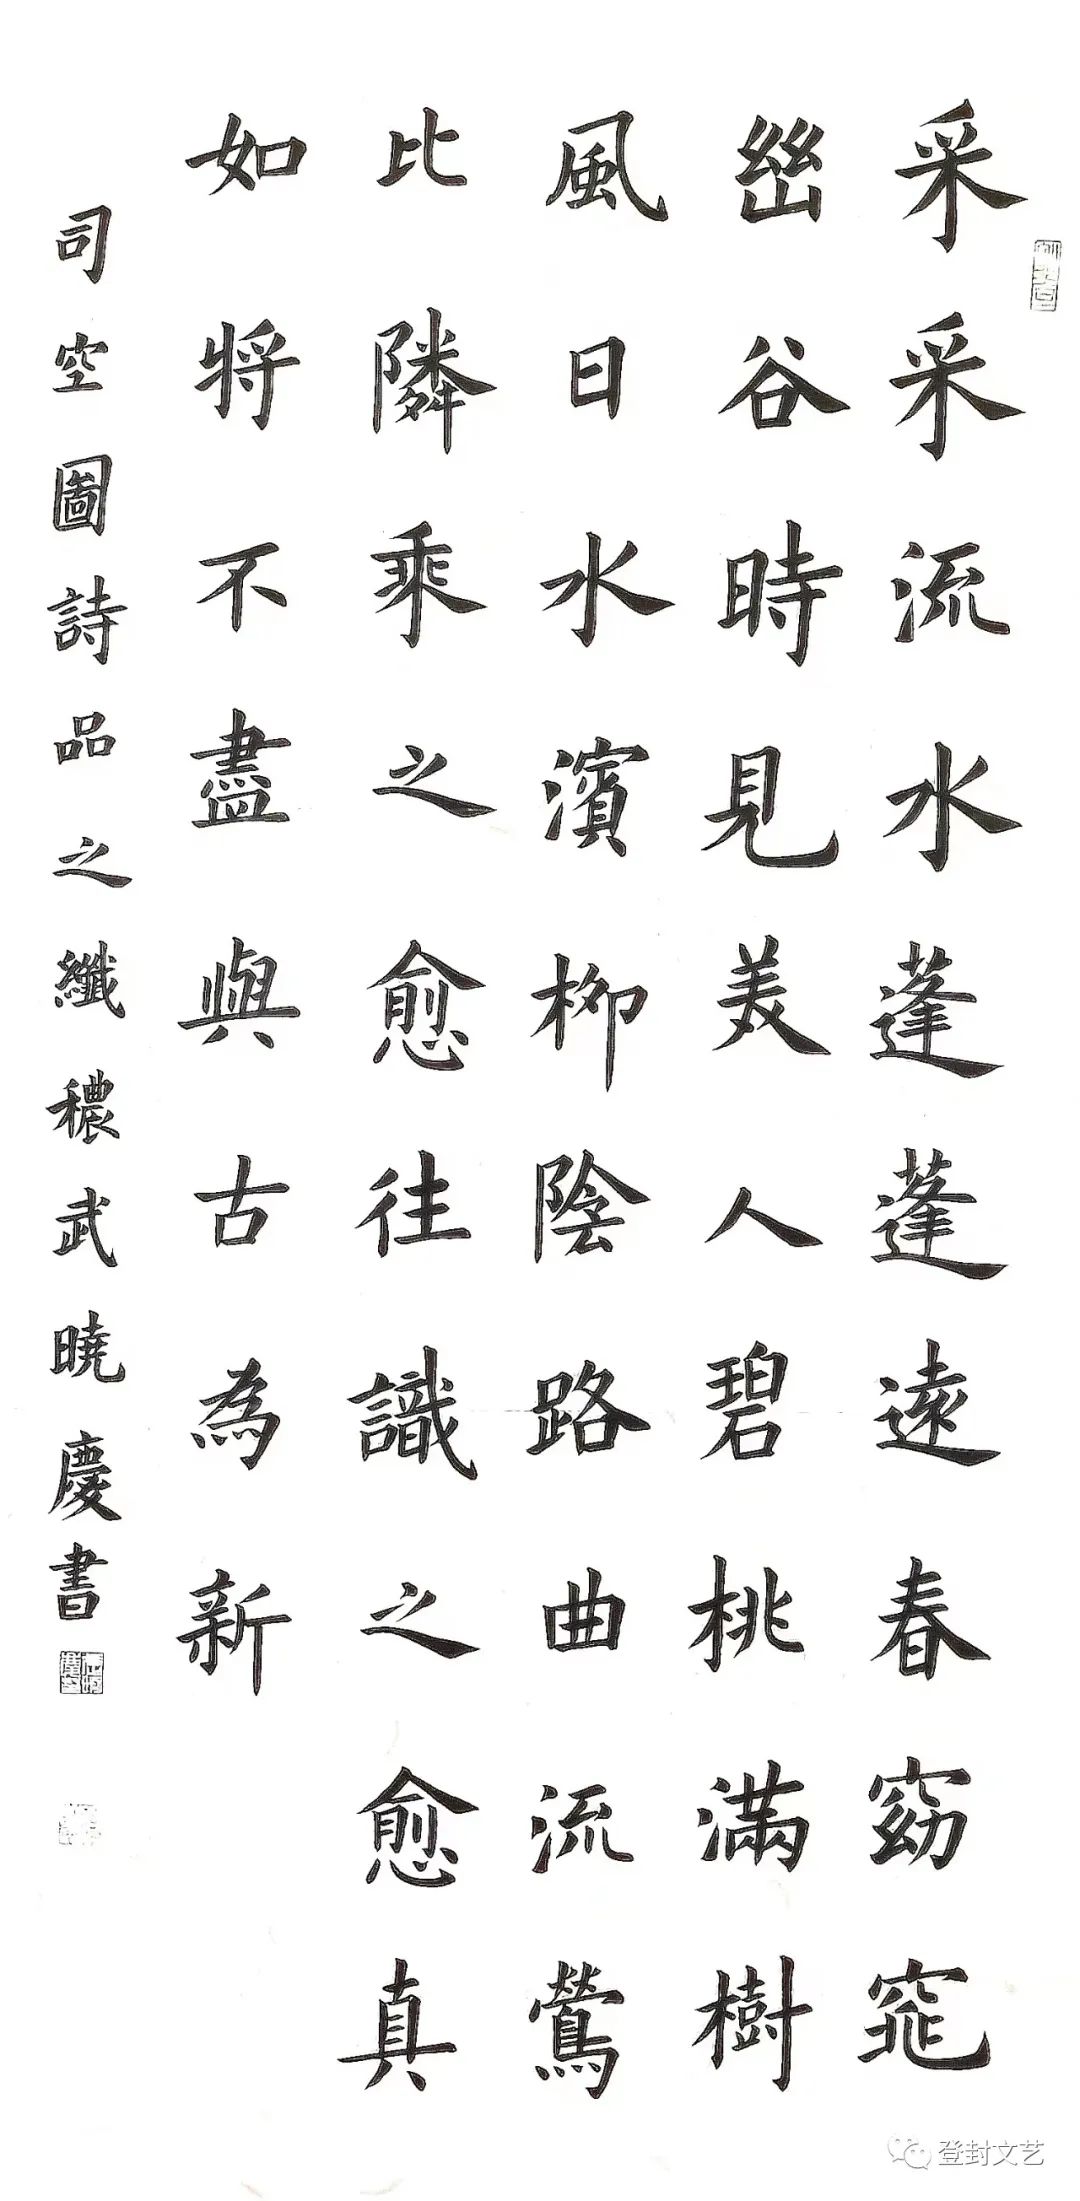 采采流水蓬蓬遠春窈窕
幽谷時見美人碧桃滿樹
風日水濱柳陰路曲流鶯
比隣乘之愈往識之愈真
如將不盡與古為新
司空圖詩品之纖穠武曉慶書
登封文艺